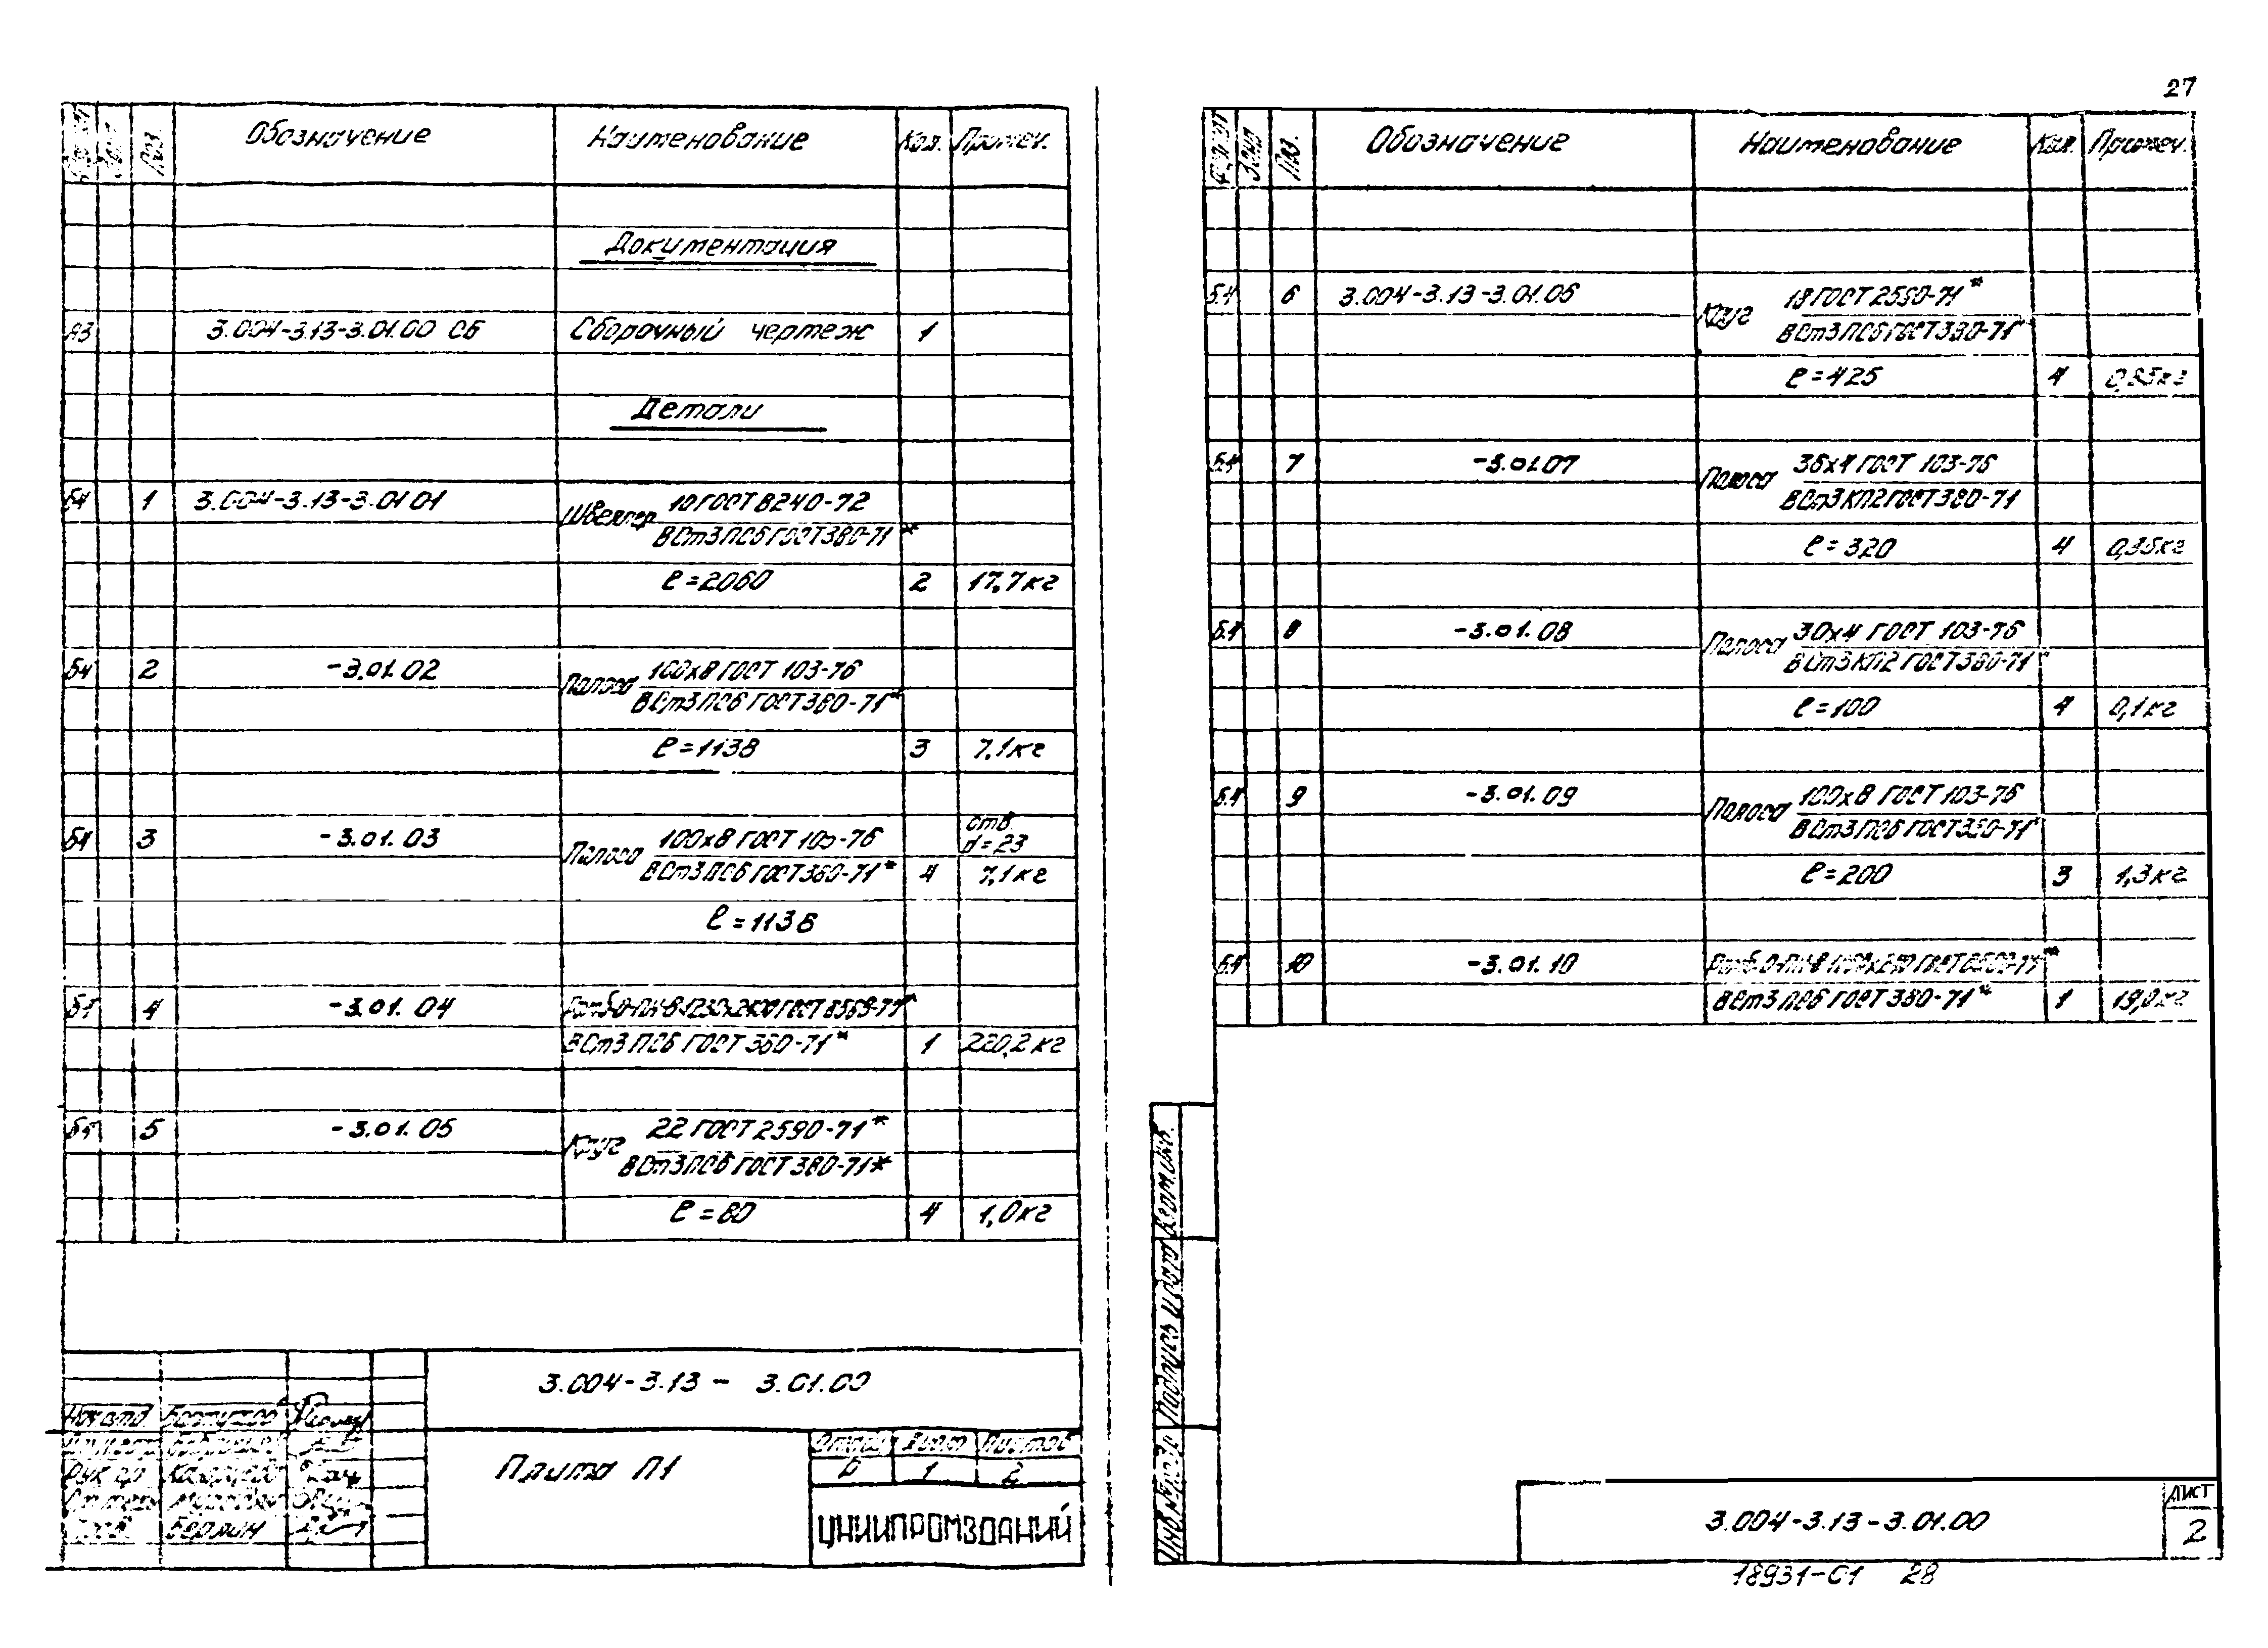 27
Формат Зона Поз. Обозначение Наименование Кол. Примеч.
Документация
А3 3.004-3.13-3.01.00 СБ Сборочный чертеж 1
Детали
БЧ 1 3.004-3.13-3.01 01 Швеллер 10 ГОСТ 8240-72
ВСт3ПС6 ГОСТ 380-71*
ℓ=2060 2 17,7кг
БЧ 2 -3.01.02 Полоса 100х8 ГОСТ 103-76
ВСт3ПС6 ГОСТ 380-71*
ℓ=1138 3 7,1кг
БЧ 3 -3.01.03 Полоса 100х8 ГОСТ 103-76 отв. d=23
ВСт3ПС6 ГОСТ 380-71* 4 7,1кг
ℓ=1138
БЧ 4 -3.01.04 ГОСТ 8568-77*
ВСт3ПС6 ГОСТ 380-71* 1 220,2кг
БЧ 5 -3.01.05 Круг 22 ГОСТ 2590-71*
ВСт3ПС6 ГОСТ 380-71*
ℓ=80 4 1,0кг
3.004-3.13 - 3.01.00
Нач.отд.
Рук.гр.
Берлин
Плита П1
Стадия Лист Листов
Р 1 2
ЦНИИПРОМЗДАНИЙ
Формат Зона Поз. Обозначение Наименование Кол. Примеч.
БЧ 6 3.004-3.13-3.01.06 Круг 18 ГОСТ 2590-71*
ВСт3ПС6 ГОСТ 380-71*
ℓ=425 4 0,85кг
БЧ 7 -3.01.07 Полоса 36х4 ГОСТ 103-76
ВСт3КП2 ГОСТ 380-71
ℓ=320 4 0,36кг
БЧ 8 -3.01.08 Полоса 30х4 ГОСТ 103-76
ВСт3КП2 ГОСТ 380-71*
ℓ=100 4 0,1кг
БЧ 9 -3.01.09 Полоса 100х8 ГОСТ 103-76
ВСт3ПС6 ГОСТ 380-71*
ℓ=200 3 1,3кг
БЧ 10 -3.01.10
ВСт3ПС6 ГОСТ 380-71* 1 19,0кг
Взам.инв.
Подпись и дата
Инв.№ подл.
3.004-3.13-3.01.00
Лист
2
18931-01 28